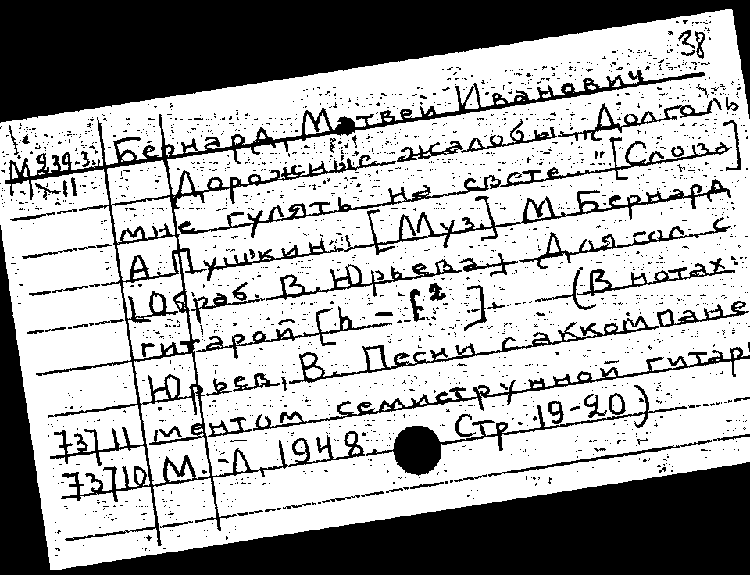 38
М 939-3 Бернард, Матвей Иванович
IX-11 Дорожные жалобы „Долголь
мне гулять на свете..." [Слова]
А. Пушкина; [Муз.] М. Бернард
[Обраб. В. Юрьева; Для гол. с
гитарой [h - f²]. (В нотах:
Юрьев, В. Песни с аккомпане
73711 ментом семиструнной гитары
73710 М.-Л, 1948. Стр. 19-20)